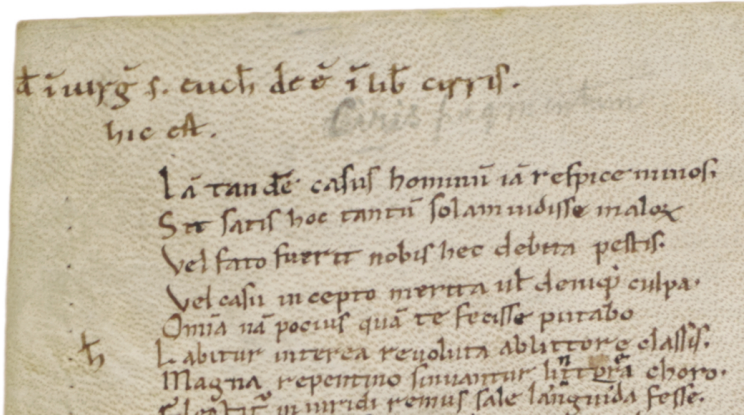 hic est.
Ciris fragmentum
Iā tandē casus hominū iā respice minos.
Sit satis hoc tantū solam uidisse maloꝝ
Vel fato fuerit nobis hec debita pestis.
Vel casu incepto merita ul̄ deniq; culpa.
Omīa nā pocius quā te fecisse putabo
Labitur interea reuoluta ablittore classis.
Magna repentino sinuantur lintora choro.
in uiridi remus sale languida fesse.